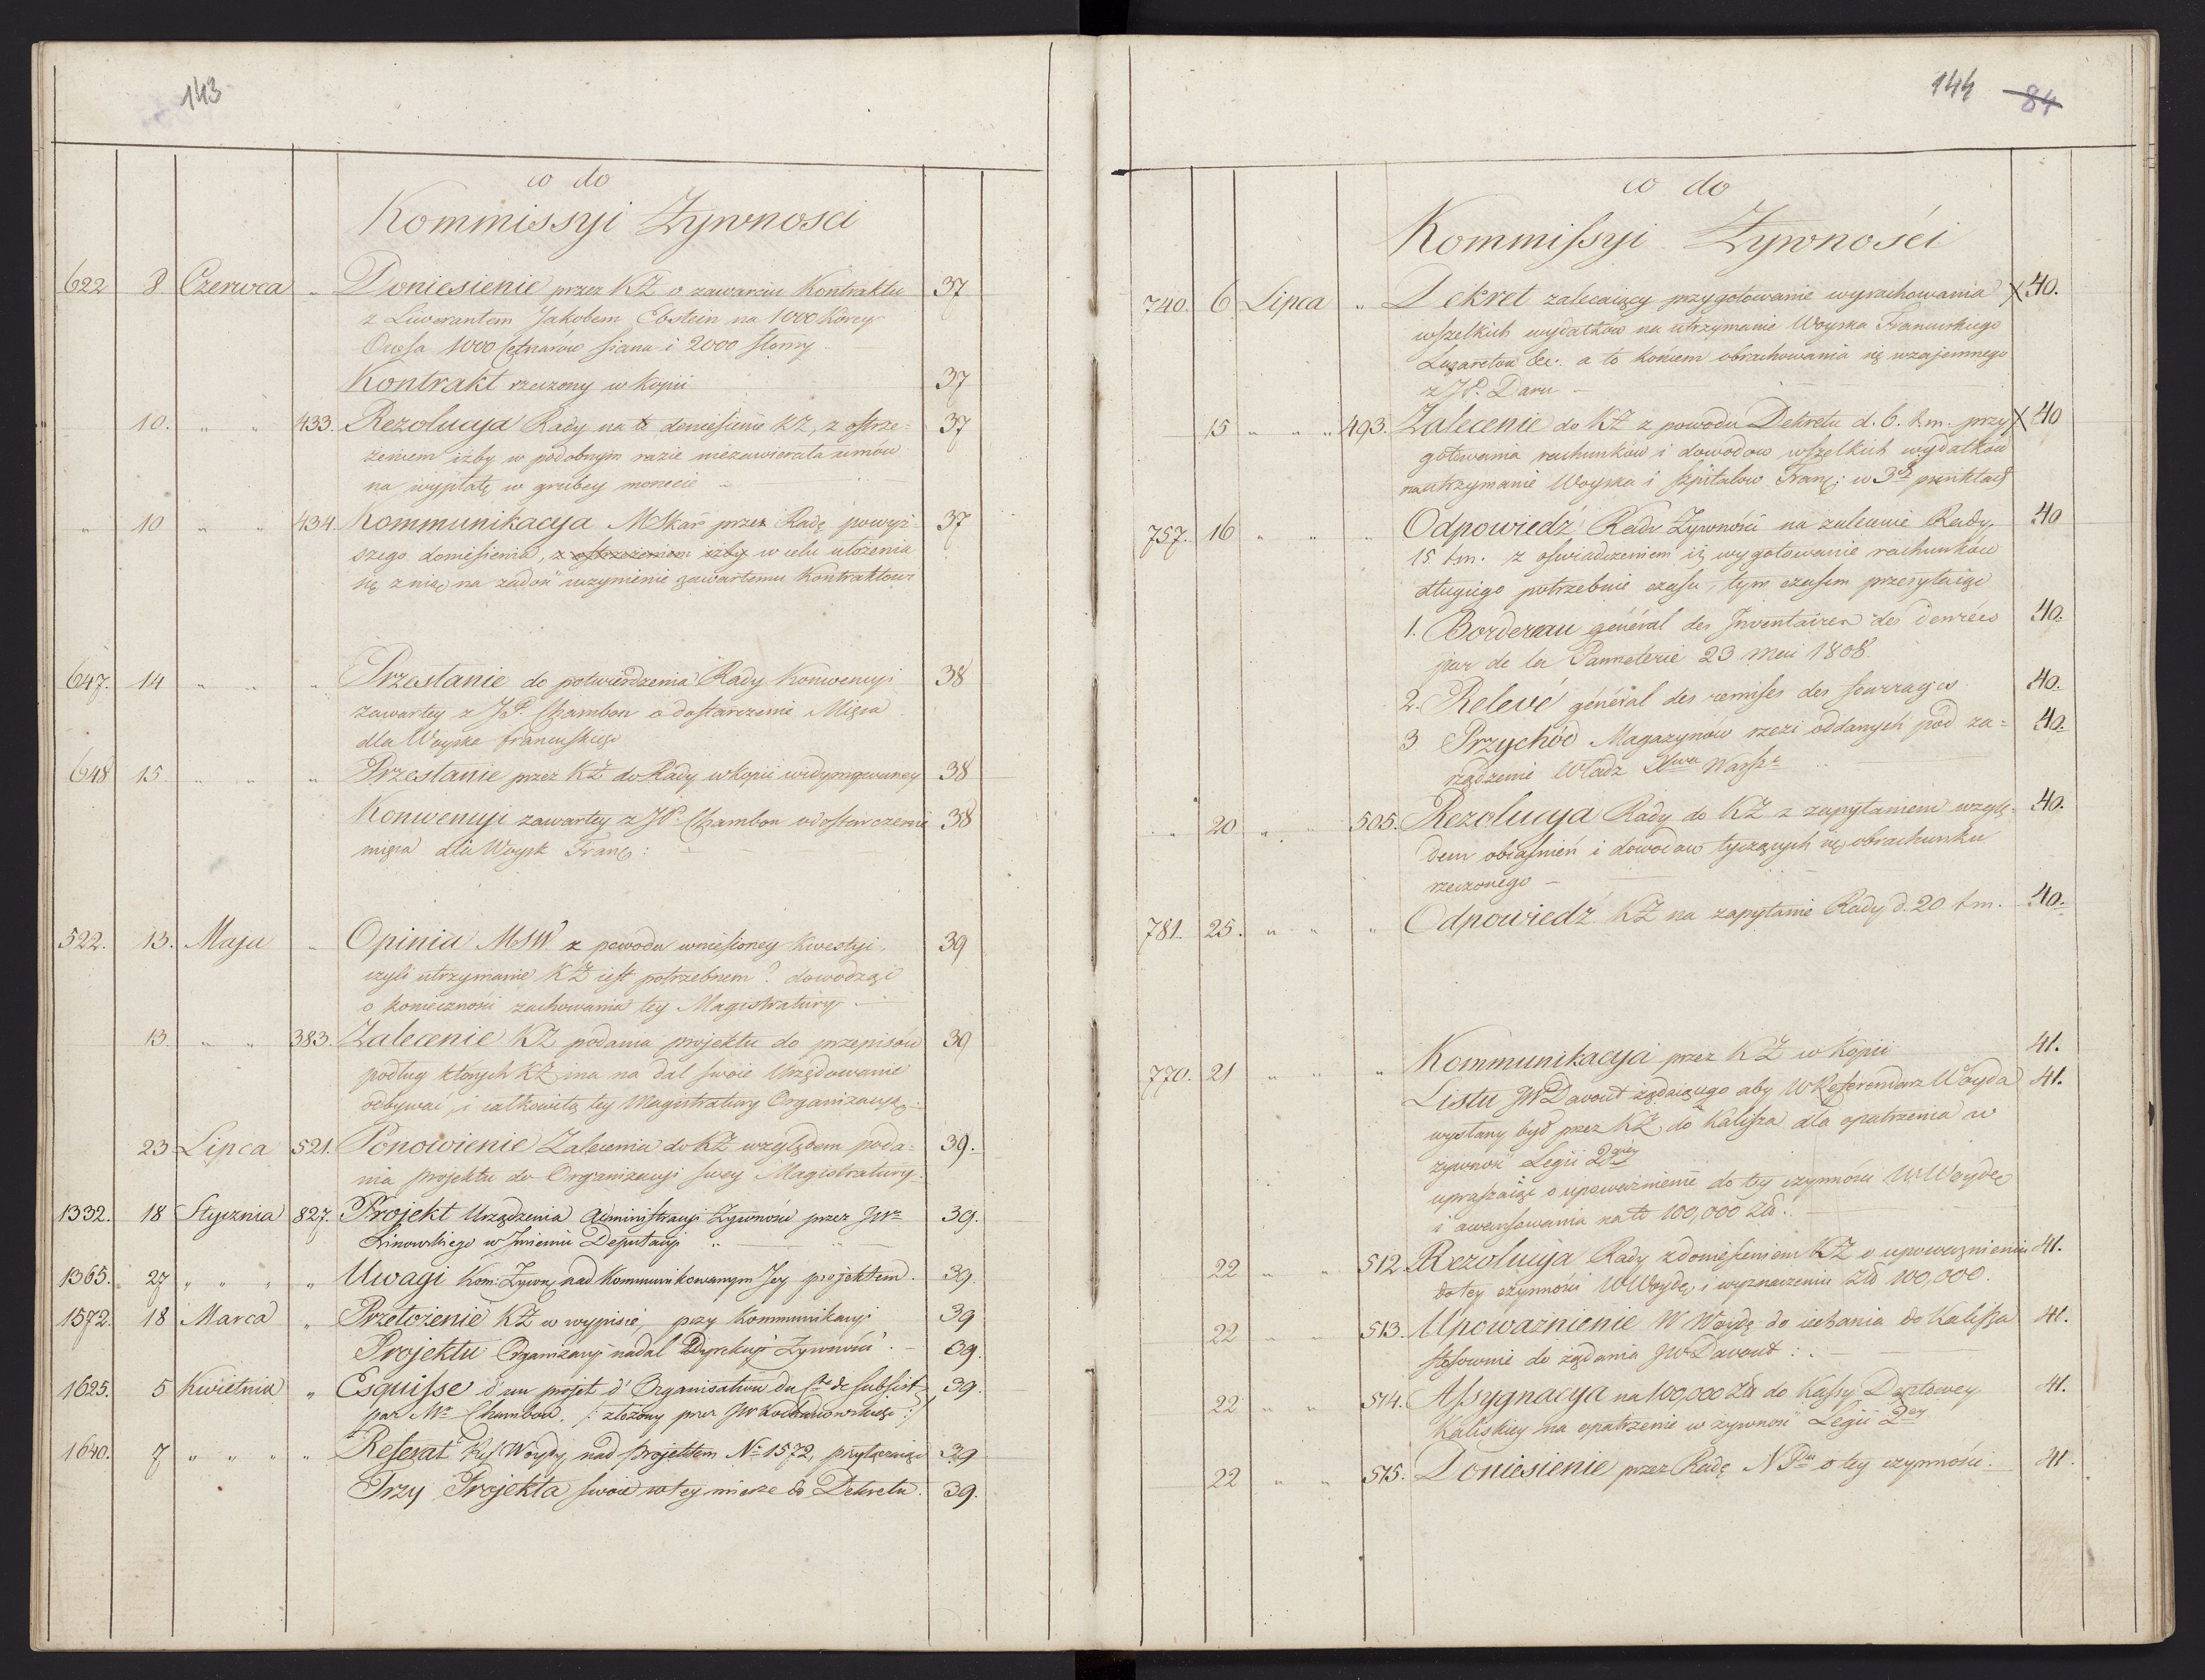 143
co do
Kommissyi Zywnosci
622 8 Czerwca " Doniesienie przez KŻ o zawarciu Kontraktu 37
z Liwerantem Jakobem Ebstein na 1000 Korcy
Owsa 1000 Cetnarow siana i 2000 słomy
Kontrakt rzeczony w kopii 37
10. " " 433. Rezolucya Rady na to doniesienie KZ, z ostrze= 37
żeniem iżby w podobnym razie niezawierała umów
na wypłatę w grubey monecie
" 10 " " 434. Kommunikacya MSkar przez Radę powyż= 37
szego doniesienia, z ostrzeżeniem iżby w celu ułożenia
się z nią na zadość uczynienie zawartemu Kontraktowi
647. 14 " " " Przesłanie do potwierdzenia Rady Konwencyi 38
zawartey z JP. Chambon o dostarczenie Mięsa
dla Woyska francuskiego
648 15. " " " Przesłanie przez KŻ do Rady w kopii widymowaney 38
Konwencyi zawartey z JP. Chambon o dostarczenie 38
mięsa dla Woysk Franc:
522. 13. Maja " Opinia MSW z powodu wniesioney kwestyi, 39
czyli utrzymanie KŻ iest potrzebnem? dowodząc
o konieczności zachowania tey Magistratury
13. " " 383. Zalecenie KZ podania projektu do przepisów 39
podług których KŻ ma na dal swoie Urzędowanie
odbywać, i całkowitą tey Magistratury Organizacyą
23 Lipca 521. Ponowienie Zalecenia do KŻ względem poda= 39.
nia projektu do Organizacyi swey Magistratury.
1332. 18 Stycznia 827. Projekt Urządzenia Administracyi Żywności przez JW
Linowskiego w Imieniu Deputacyi 39.
1365. 27 " " " " Uwagi Kom: Żywn, nad Kommunikowanym Jey projektem. 39.
1572. 18 Marca " Przełożenie KŻ w wypisie, przy Kommunikacyi 39
Projektu Organizacyi nadal Dyrekcyi Żywności. 39.
1625. 5 Kwietnia " Esquisse d'un projet d'Organisation du Cté de subsist 39.
par Mr Chambon. /: złożony przez JW Kochanowskiego :/
1640. 7 " " " " Referat Ref Woydy, nad projektem No 1572, przyłączaiąc 39
Trzy Projekta swoie w tey mierze do Dekretu. 39.
144 84
co do
Kommissyi Zywności
740. 6 Lipca " Dekret zalecaiący przygotowanie wyrachowania X 40.
wszelkich wydatkow na utrzymanie Woyska Francuskiego
Lazaretow &c: a to końcem obrachowania się wzajemnego
z JP. Daru
15 " " " 493. Zalecenie do KŻ z powodu Dekretu d. 6. t.m. przy X 40
gotowania rachunków i dowodow wszelkich wydatków
na utrzymanie Woyska i szpitalow Franc: w 3ch punktach
757. 16 " " " Odpowiedź Rady Żywności na zalecenie Rady 40
15. t.m. z oświadczeniem iż wygotowanie rachunków
długiego potrzebuie czasu, tym czasem przesyłaiąc
1. Bordereau général des Inventaires des denrées 40.
par de la Panneterie 23 mai 1808.
2. Relevé général des remises des fourrages 40.
3 Przychód Magazynów rzezi oddanych pod za= 40.
rządzenie Władz Xtwa Warsz
" 20 " " 505. Rezolucya Rady do KŻ z zapytaniem wzglę= 40.
dem obiaśnień i dowodow tyczących się obrachunku
rzeczonego
781. 25. " " " Odpowiedź KŻ na zapytanie Rady d. 20 t m. 40.
770. 21 " " " Kommunikacya przez KŻ w kopii 41.
Listu JW Davout żądaiącego aby W Referendarz Woyda 41.
wysłany był przez KŻ do Kalisza dla opatrzenia w
żywność Legii 2giey
upraszaiąc o upoważnienie do tey czynności W Woydę
i awansowania na to 100,000 Zł.
22 " " 512. Rezolucya Rady z doniesieniem KŻ o upoważnieniu 41.
do tey czynności W Woydę i wyznaczeniu Zł 100,000.
22 " " 513. Upoważnienie W Woydę do iechania do Kalisza 41.
stosownie do żądania JW Davout
22 " " 514. Assygnacya na 100,000 Zł do Kassy Deptowey 41.
Kaliskiey na opatrzenie w żywność Legii 2ey
22 " " 515. Doniesienie przez Radę N Pu o tey czynności. 41.